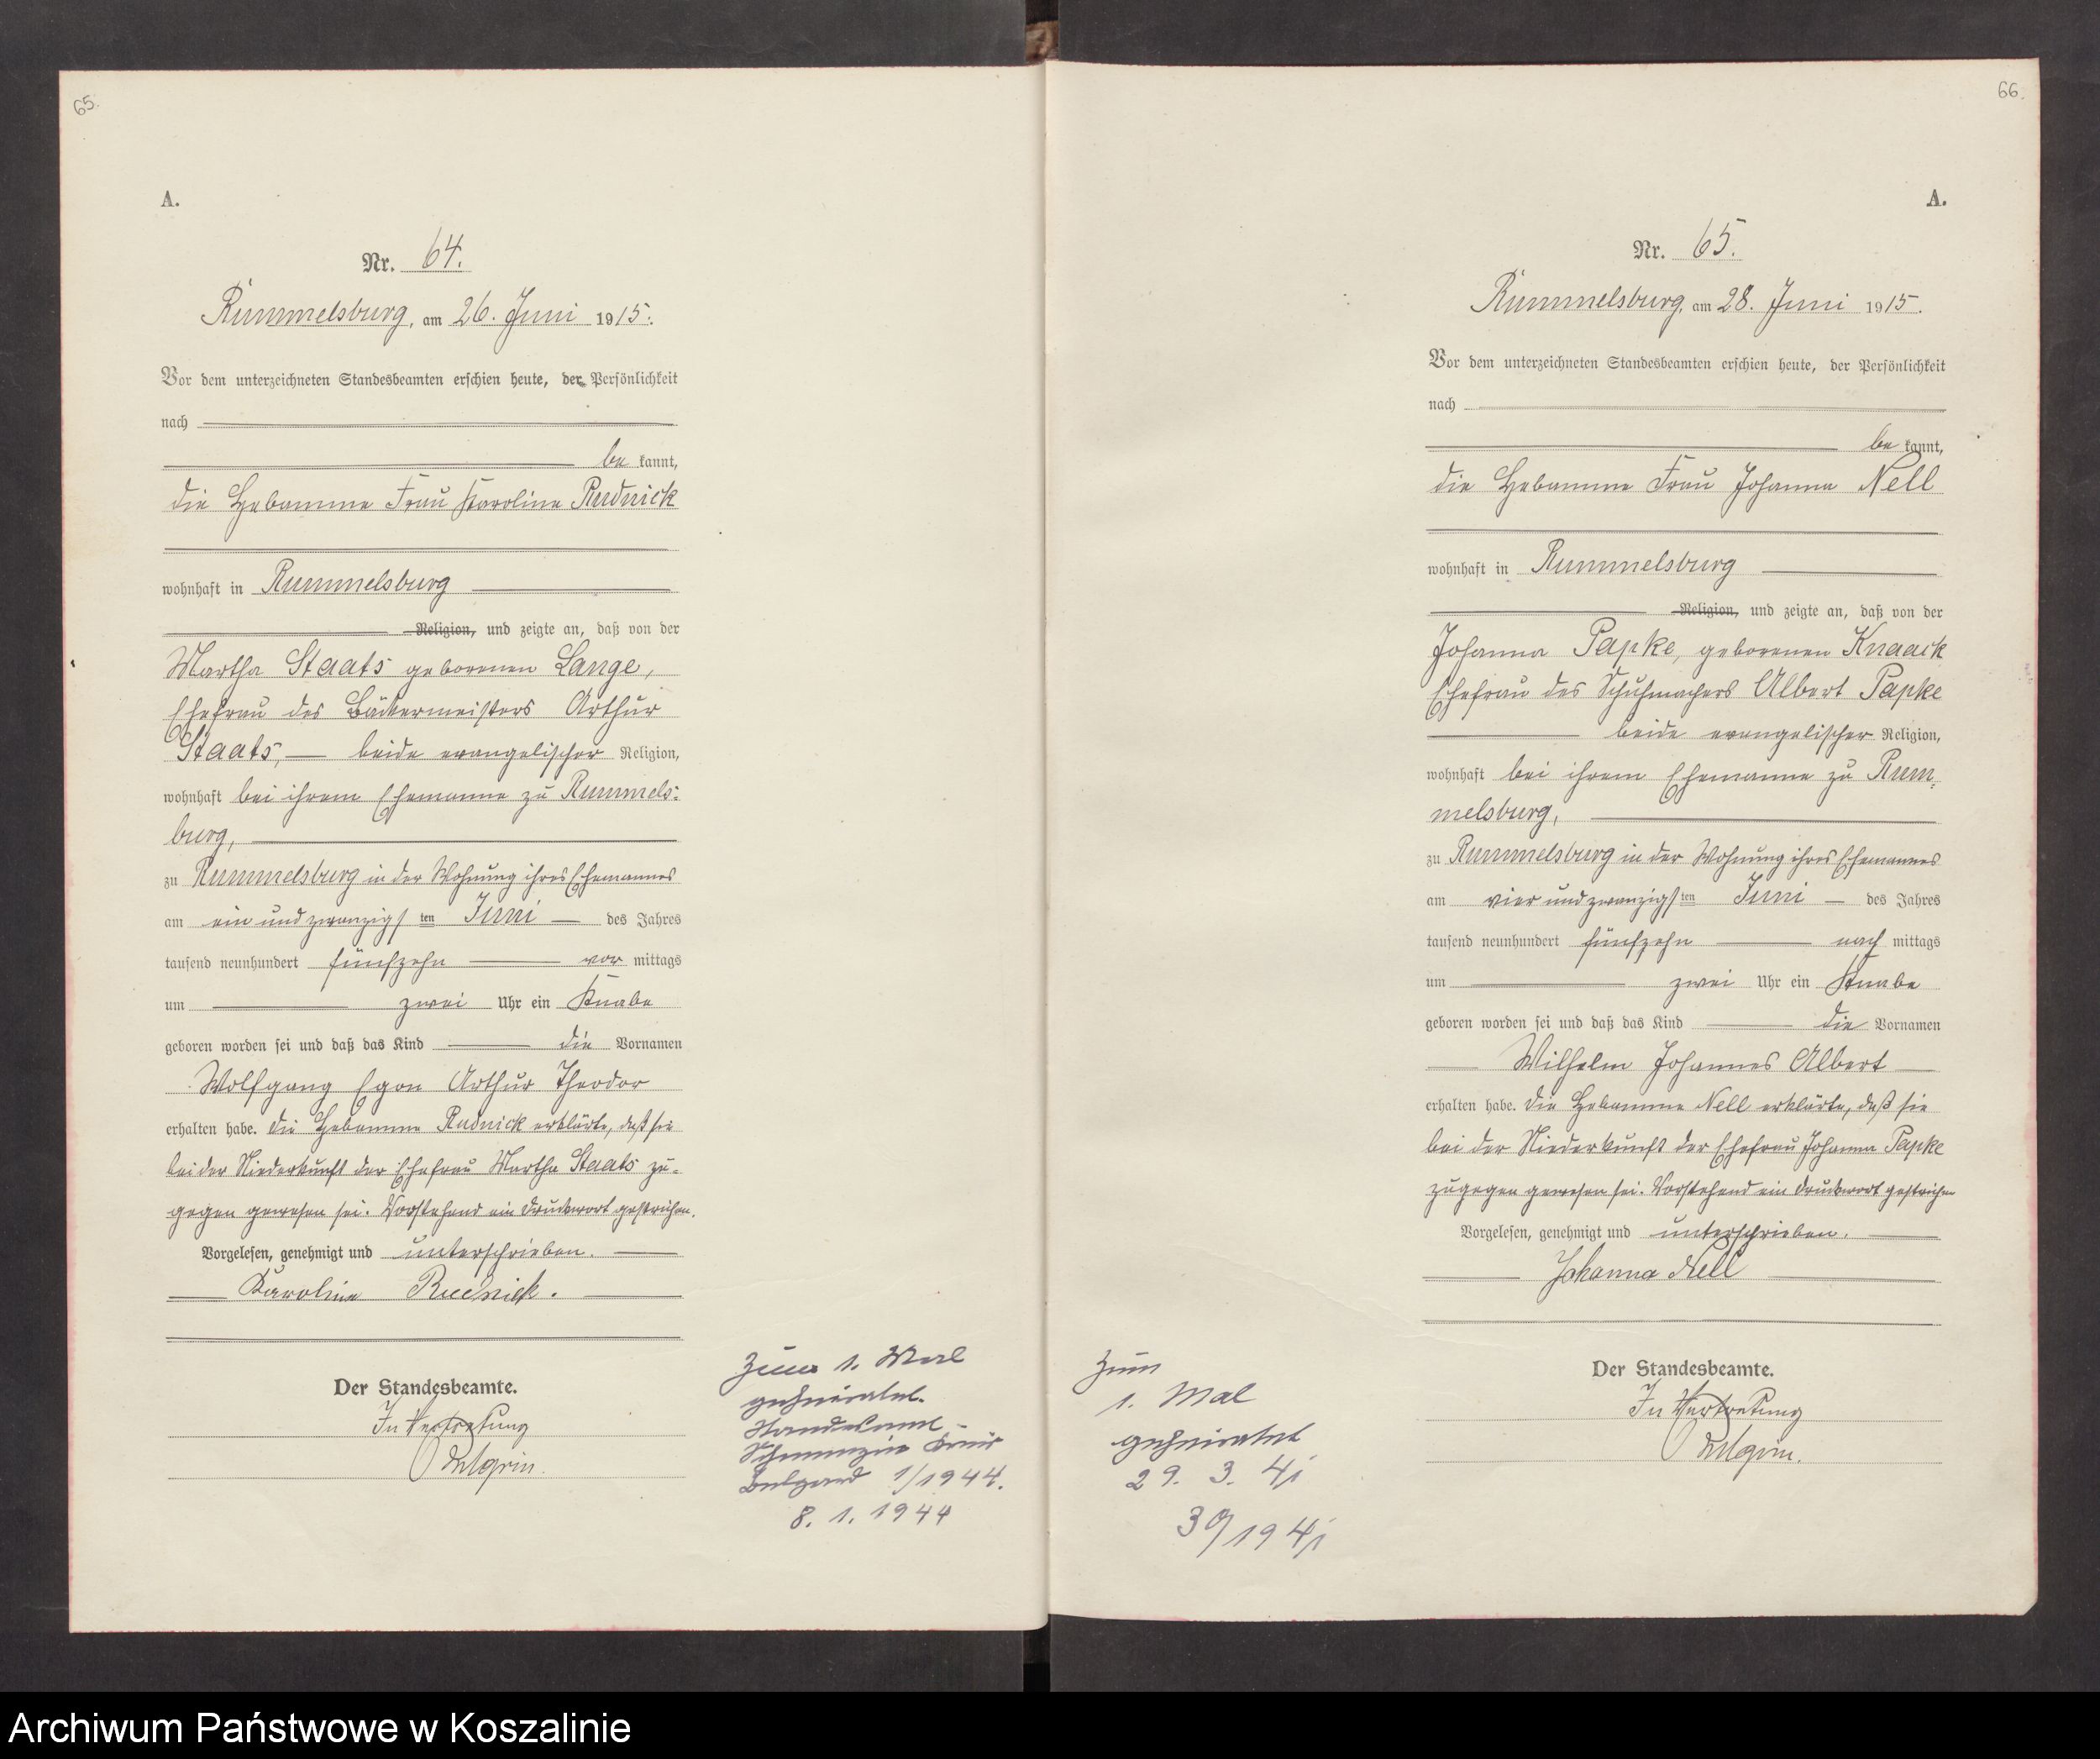 65.
A.
Nr. 64.
Rummelsburg, am 26. Juni 1915.
Vor dem unterzeichneten Standesbeamten erschien heute, der Persönlichkeit
nach
be kannt,
die Hebamme Frau Karoline Rudnick
wohnhaft in Rummelsburg
Religion, und zeigte an, daß von der
Martha Staats geborenen Lange,
Ehefrau des Bäckermeisters Arthur
Staats, beide evangelischer Religion,
wohnhaft bei ihrem Ehemanne zu Rummels-
burg,
zu Rummelsburg in der Wohnung ihres Ehemannes
am ein und zwanzigsten Juni des Jahres
tausend neunhundert fünfzehn vor mittags
um zwei Uhr ein Knabe
geboren worden sei und daß das Kind die Vornamen
Wolfgang Egon Arthur Theodor
erhalten habe. Die Hebamme Rudnick erklärte, daß sie
bei der Niederkunft der Ehefrau Martha Staats zu-
gegen gewesen sei. Vorstehend ein Druckwort gestrichen.
Vorgelesen, genehmigt und unterschrieben.
Karoline Rudnick.
Der Standesbeamte.
In Vertretung
Zum 1. Mal
geheiratet.
Standesamt
Kreis
Belgard 1/1944.
8. 1. 1944
66.
A.
Nr. 65.
Rummelsburg, am 28. Juni 1915.
Vor dem unterzeichneten Standesbeamten erschien heute, der Persönlichkeit
nach
be kannt,
die Hebamme Frau Johanna Nell
wohnhaft in Rummelsburg
Religion, und zeigte an, daß von der
Johanna Papke, geborenen Knaack
Ehefrau des Schuhmachers Albert Papke
beide evangelischer Religion,
wohnhaft bei ihrem Ehemanne zu Rum-
melsburg,
zu Rummelsburg in der Wohnung ihres Ehemannes
am vier und zwanzigsten Juni des Jahres
tausend neunhundert fünfzehn nach mittags
um zwei Uhr ein Knabe
geboren worden sei und daß das Kind die Vornamen
Wilhelm Johannes Albert
erhalten habe. Die Hebamme Nell erklärte, daß sie
bei der Niederkunft der Ehefrau Johanna Papke
zugegen gewesen sei. Vorstehend ein Druckwort gestrichen
Vorgelesen, genehmigt und unterschrieben.
Johanna Nell
Der Standesbeamte.
In Vertretung
Zum
1. Mal
geheiratet
29. 3. 41
39/1941
Archiwum Państwowe w Koszalinie